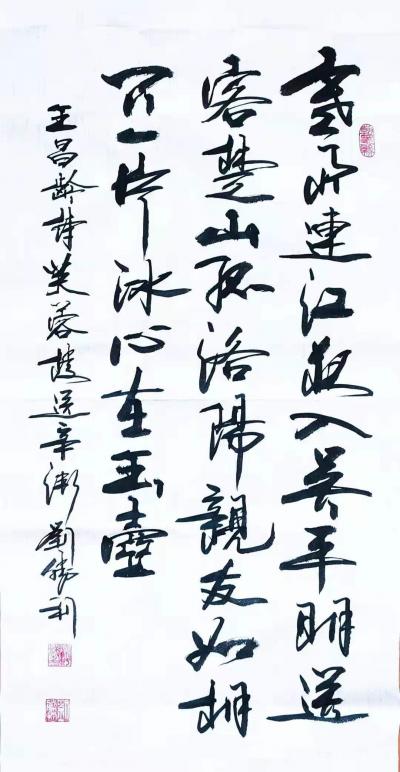 寒雨連江夜入吳平明送
客楚山孤洛陽親友如相
问一片冰心在玉壺
王昌龄詩芙蓉樓送辛漸 劉勝利